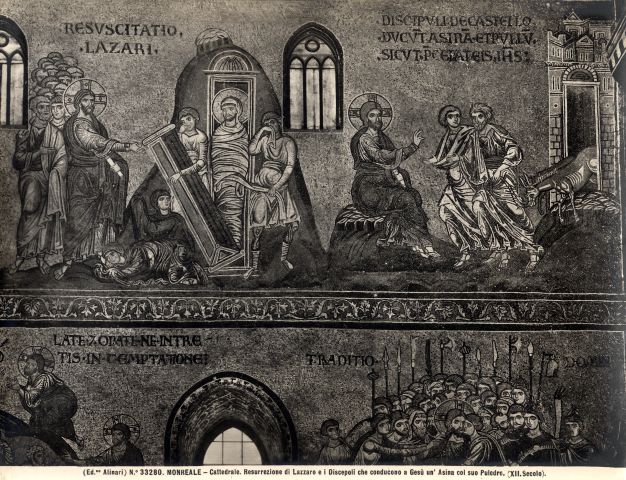 RESUSCITATIO
LAZARI
DISCIPULI DE CASTELLO
DUCUT ASINA ET PULLU
SICUT P'CEP EIS IHS
LATE ORATE NE INTRE
TIS IN TEMPTATIONE
TRADITIO DOMIN
(Ed.ne Alinari) N.° 33280. MONREALE – Cattedrale. Resurrezione di Lazzaro e i Discepoli che conducono a Gesù un' Asina col suo Puledro. (XII. Secolo).